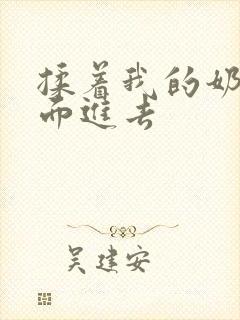 揉着我的奶
而進去
吴建安